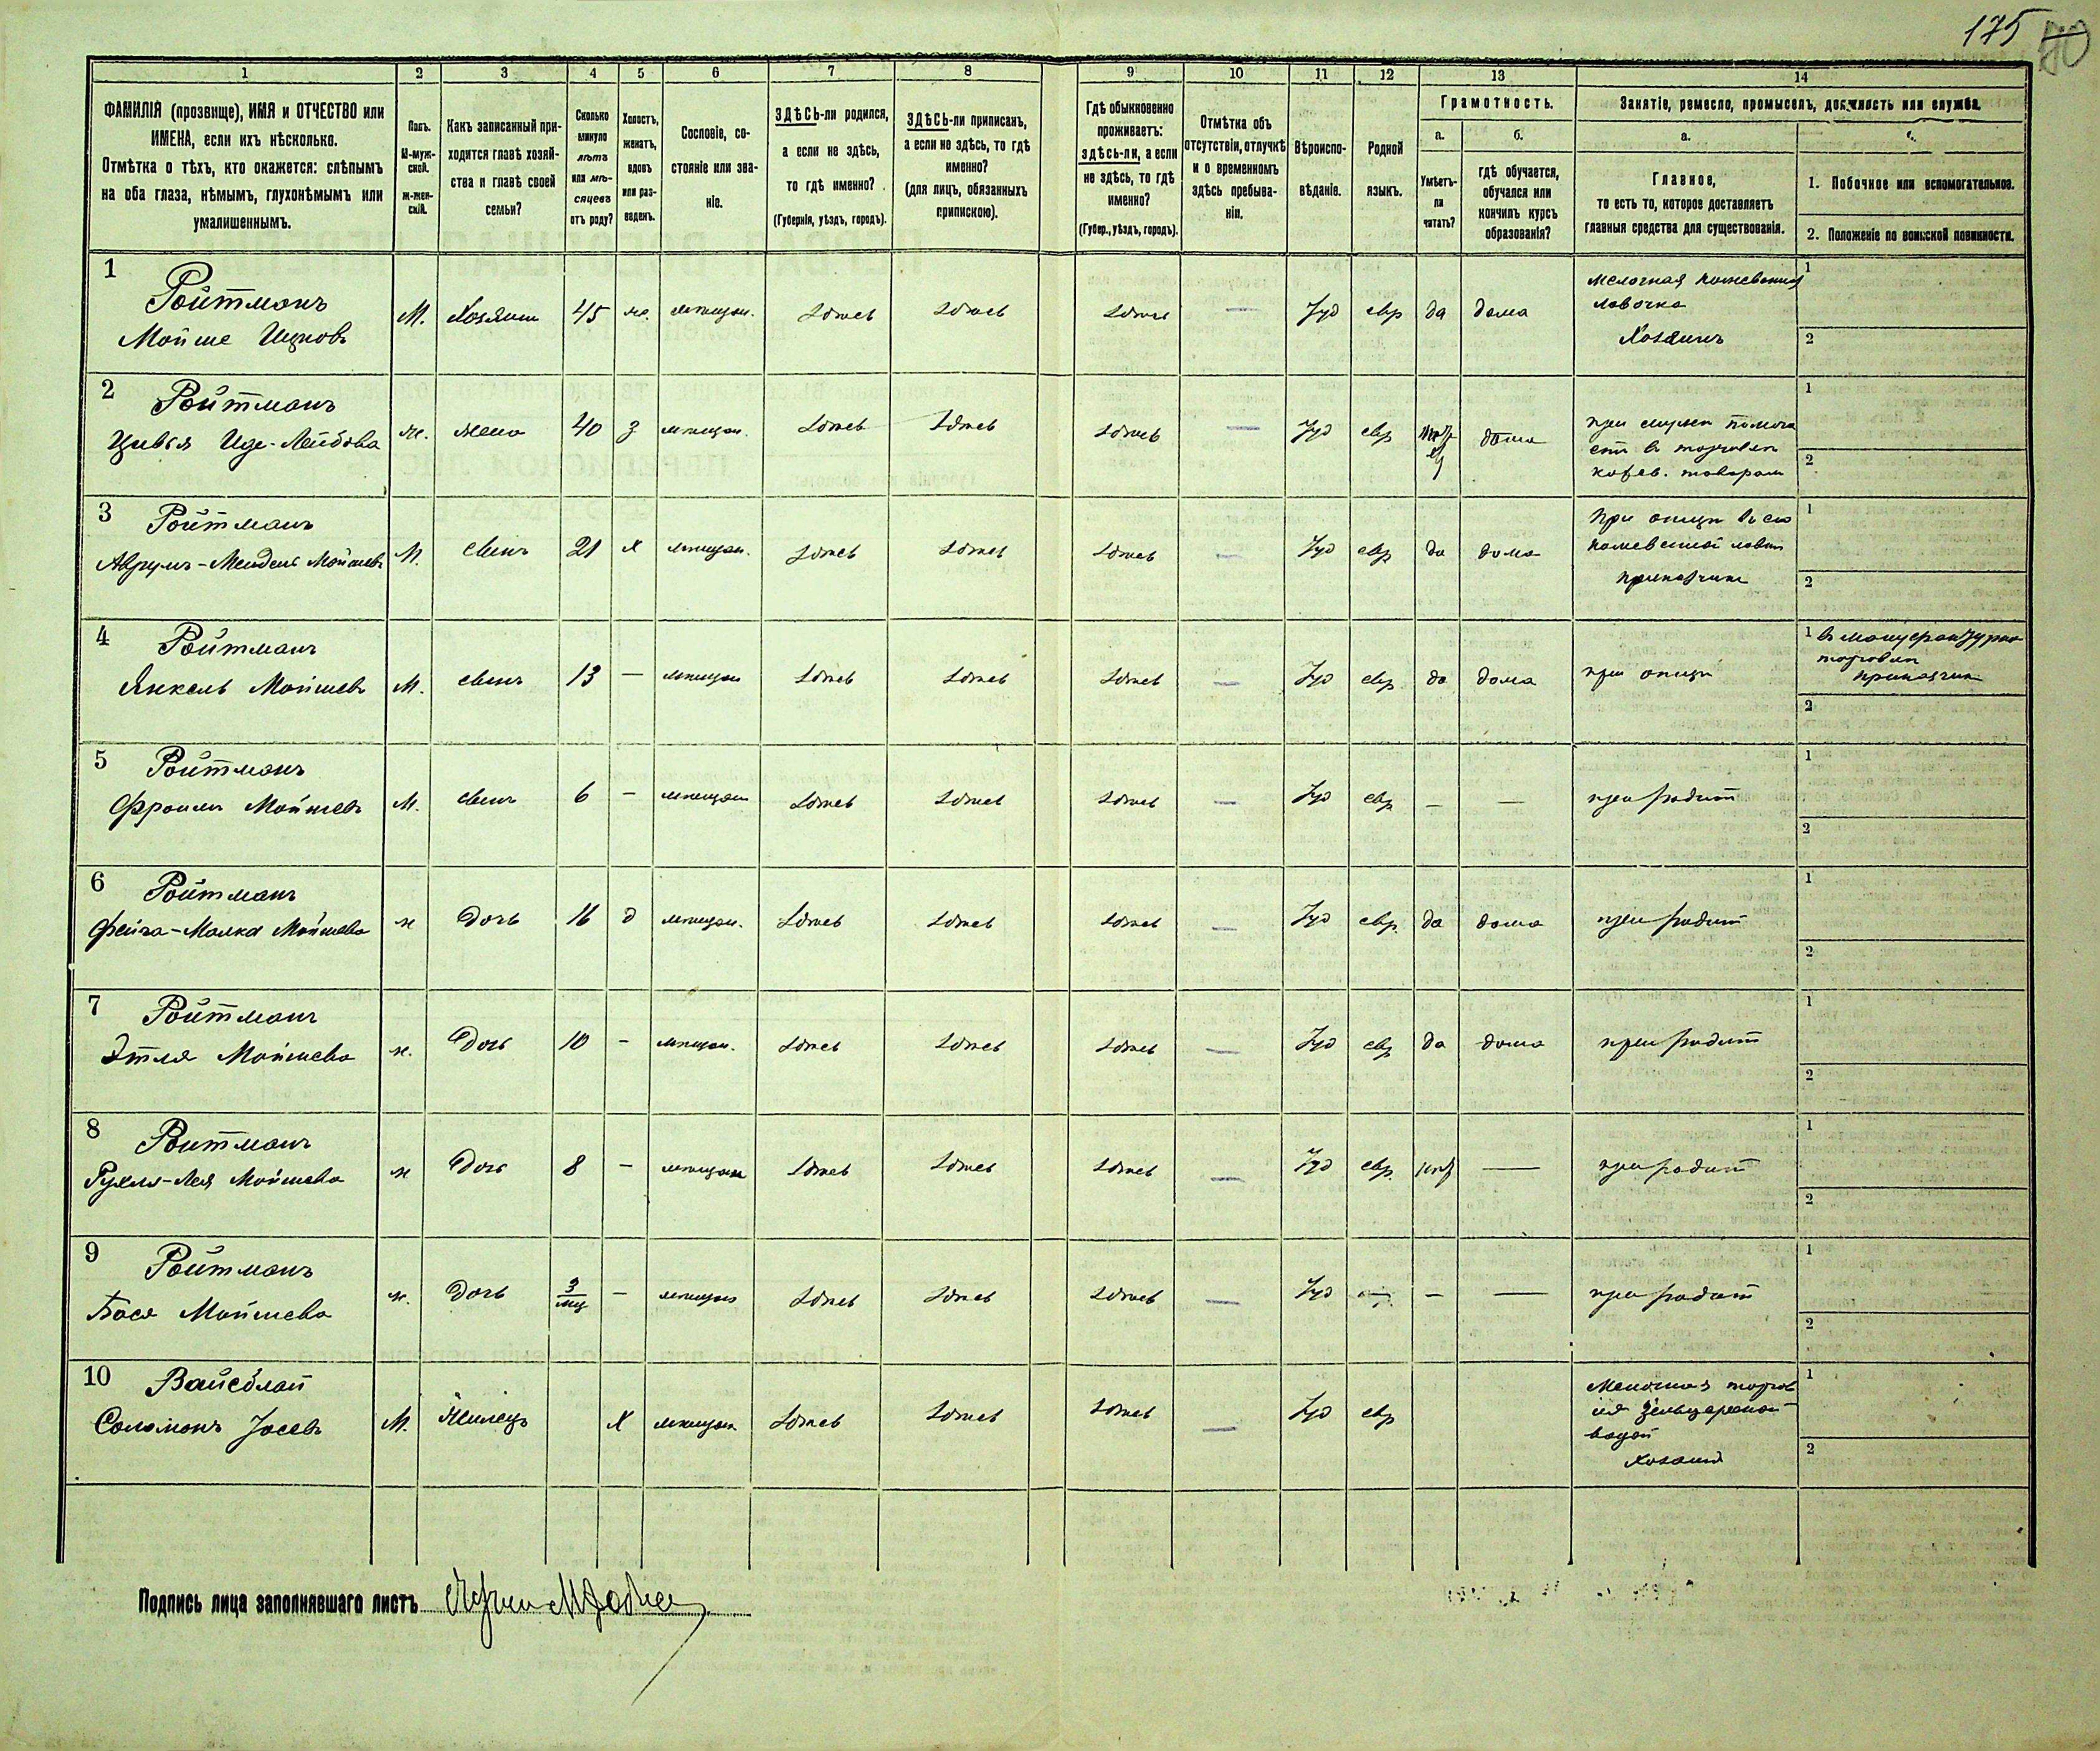 175 80
1 2 3 4 5 6 7 8 9 10 11 12 13 14
ФАМИЛІЯ (прозвище), ИМЯ и ОТЧЕСТВО или
ИМЕНА, если ихъ нѣсколько.
Отмѣтка о тѣхъ, кто окажется: слѣпымъ
на оба глаза, нѣмымъ, глухонѣмымъ или
умалишеннымъ.
Полъ.
М-муж-
ской.
Ж-жен-
скій.
Какъ записанный при-
ходится главѣ хозяй-
ства и главѣ своей
семьи?
Сколько
минуло
лѣтъ
или мѣ-
сяцевъ
отъ роду?
Холостъ,
женатъ,
вдовъ
или раз-
веденъ.
Сословіе, со-
стояніе или зва-
ніе.
ЗДѢСЬ-ли родился,
а если не здѣсь,
то гдѣ именно?
(Губернія, уѣздъ, городъ).
ЗДѢСЬ-ли приписанъ,
а если не здѣсь, то гдѣ
именно?
(для лицъ, обязанныхъ
припискою).
Гдѣ обыкновенно
проживаетъ:
здѣсь-ли, а если
не здѣсь, то гдѣ
именно?
(Губер., уѣздъ, городъ).
Отмѣтка объ
отсутствіи, отлучкѣ
и о временномъ
здѣсь пребыва-
ніи.
Вѣроиспо-
вѣданіе.
Родной
языкъ.
Грамотность.
а.
Умѣетъ-
ли
читать?
б.
гдѣ обучается,
обучался или
кончилъ курсъ
образованія?
Занятіе, ремесло, промыселъ, должность или служба.
а.
Главное,
то есть то, которое доставляетъ
главныя средства для существованія.
1. Побочное или вспомогательное.
2. Положеніе по воинской повинности.
1 Ройтманъ
Мойше Ицковъ М. Хозяинъ 45 ж. мѣщан. здѣсь здѣсь здѣсь — Іуд евр да дома
мелочная кожевенная
лавочка
Хозяинъ
1
2
2 Ройтманъ
Цивья Иде-Лейбова ж. жена 40 з мѣщан. здѣсь здѣсь здѣсь — Іуд евр дома
при мужѣ помога
етъ въ торговлѣ
кожев. товаромъ
1
2
3 Ройтманъ
Аврумъ-Мендель Мойшевъ М. сынъ 21 х мѣщан. здѣсь здѣсь здѣсь — Іуд евр да дома
при отцѣ въ его
кожевенной лавкѣ
приказчикъ
1
2
4 Ройтманъ
Янкель Мойшевъ М. сынъ 13 — мѣщан здѣсь здѣсь здѣсь — Іуд евр да дома при отцѣ
1 въ мануфактурно
торговлѣ
приказчик
2
5 Ройтманъ
Фроимъ Мойшевъ М. сынъ 6 — мѣщан здѣсь здѣсь здѣсь — Іуд евр — — при родит
1
2
6 Ройтманъ
Фейга-Малка Мойшева ж дочь 16 д мѣщан. здѣсь здѣсь здѣсь — Іуд евр. да дома при родит
1
2
7 Ройтманъ
Этля Мойшева ж. дочь 10 — мѣщан. здѣсь здѣсь здѣсь — Іуд евр да дома при родит
1
2
8 Ройтманъ
Рухля-Лея Мойшева ж дочь 8 — мѣщан здѣсь здѣсь здѣсь — Іуд евр. нѣт — при родит
1
2
9 Ройтманъ
Бася Мойшева ж. дочь 3 мц — мѣщан здѣсь здѣсь здѣсь — Іуд — — — при родит
1
2
10 Вайсблат
Соломонъ Іосевъ М. Жилецъ Х мѣщан здѣсь здѣсь здѣсь — Іуд евр
Мелочная торгов
ля зельцерской
водой
Хозяин
1
2
Подпись лица заполнявшаго листъ